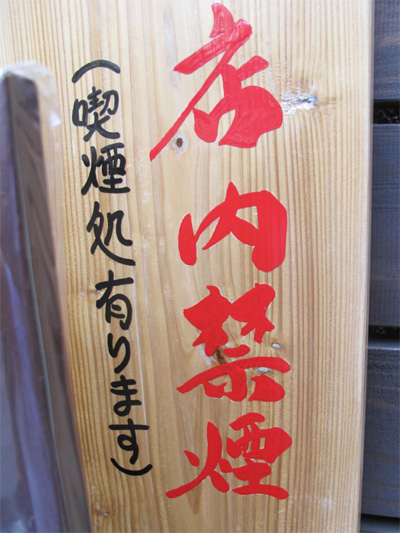 店内禁煙
（喫煙処有ります）